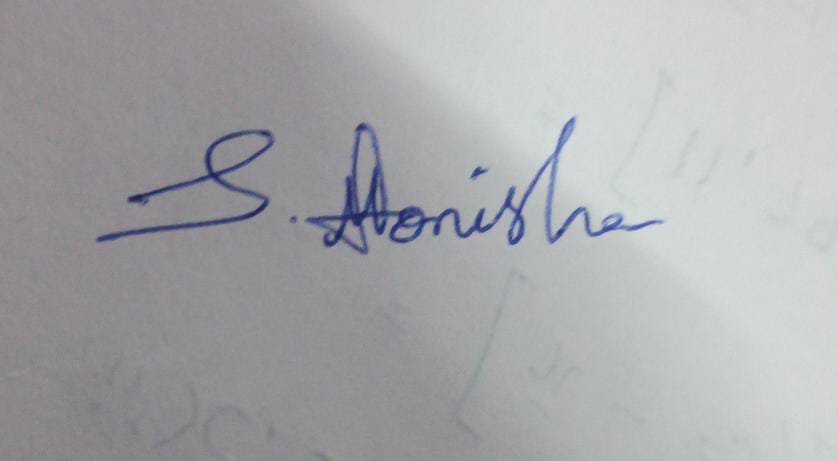 S. Monisha